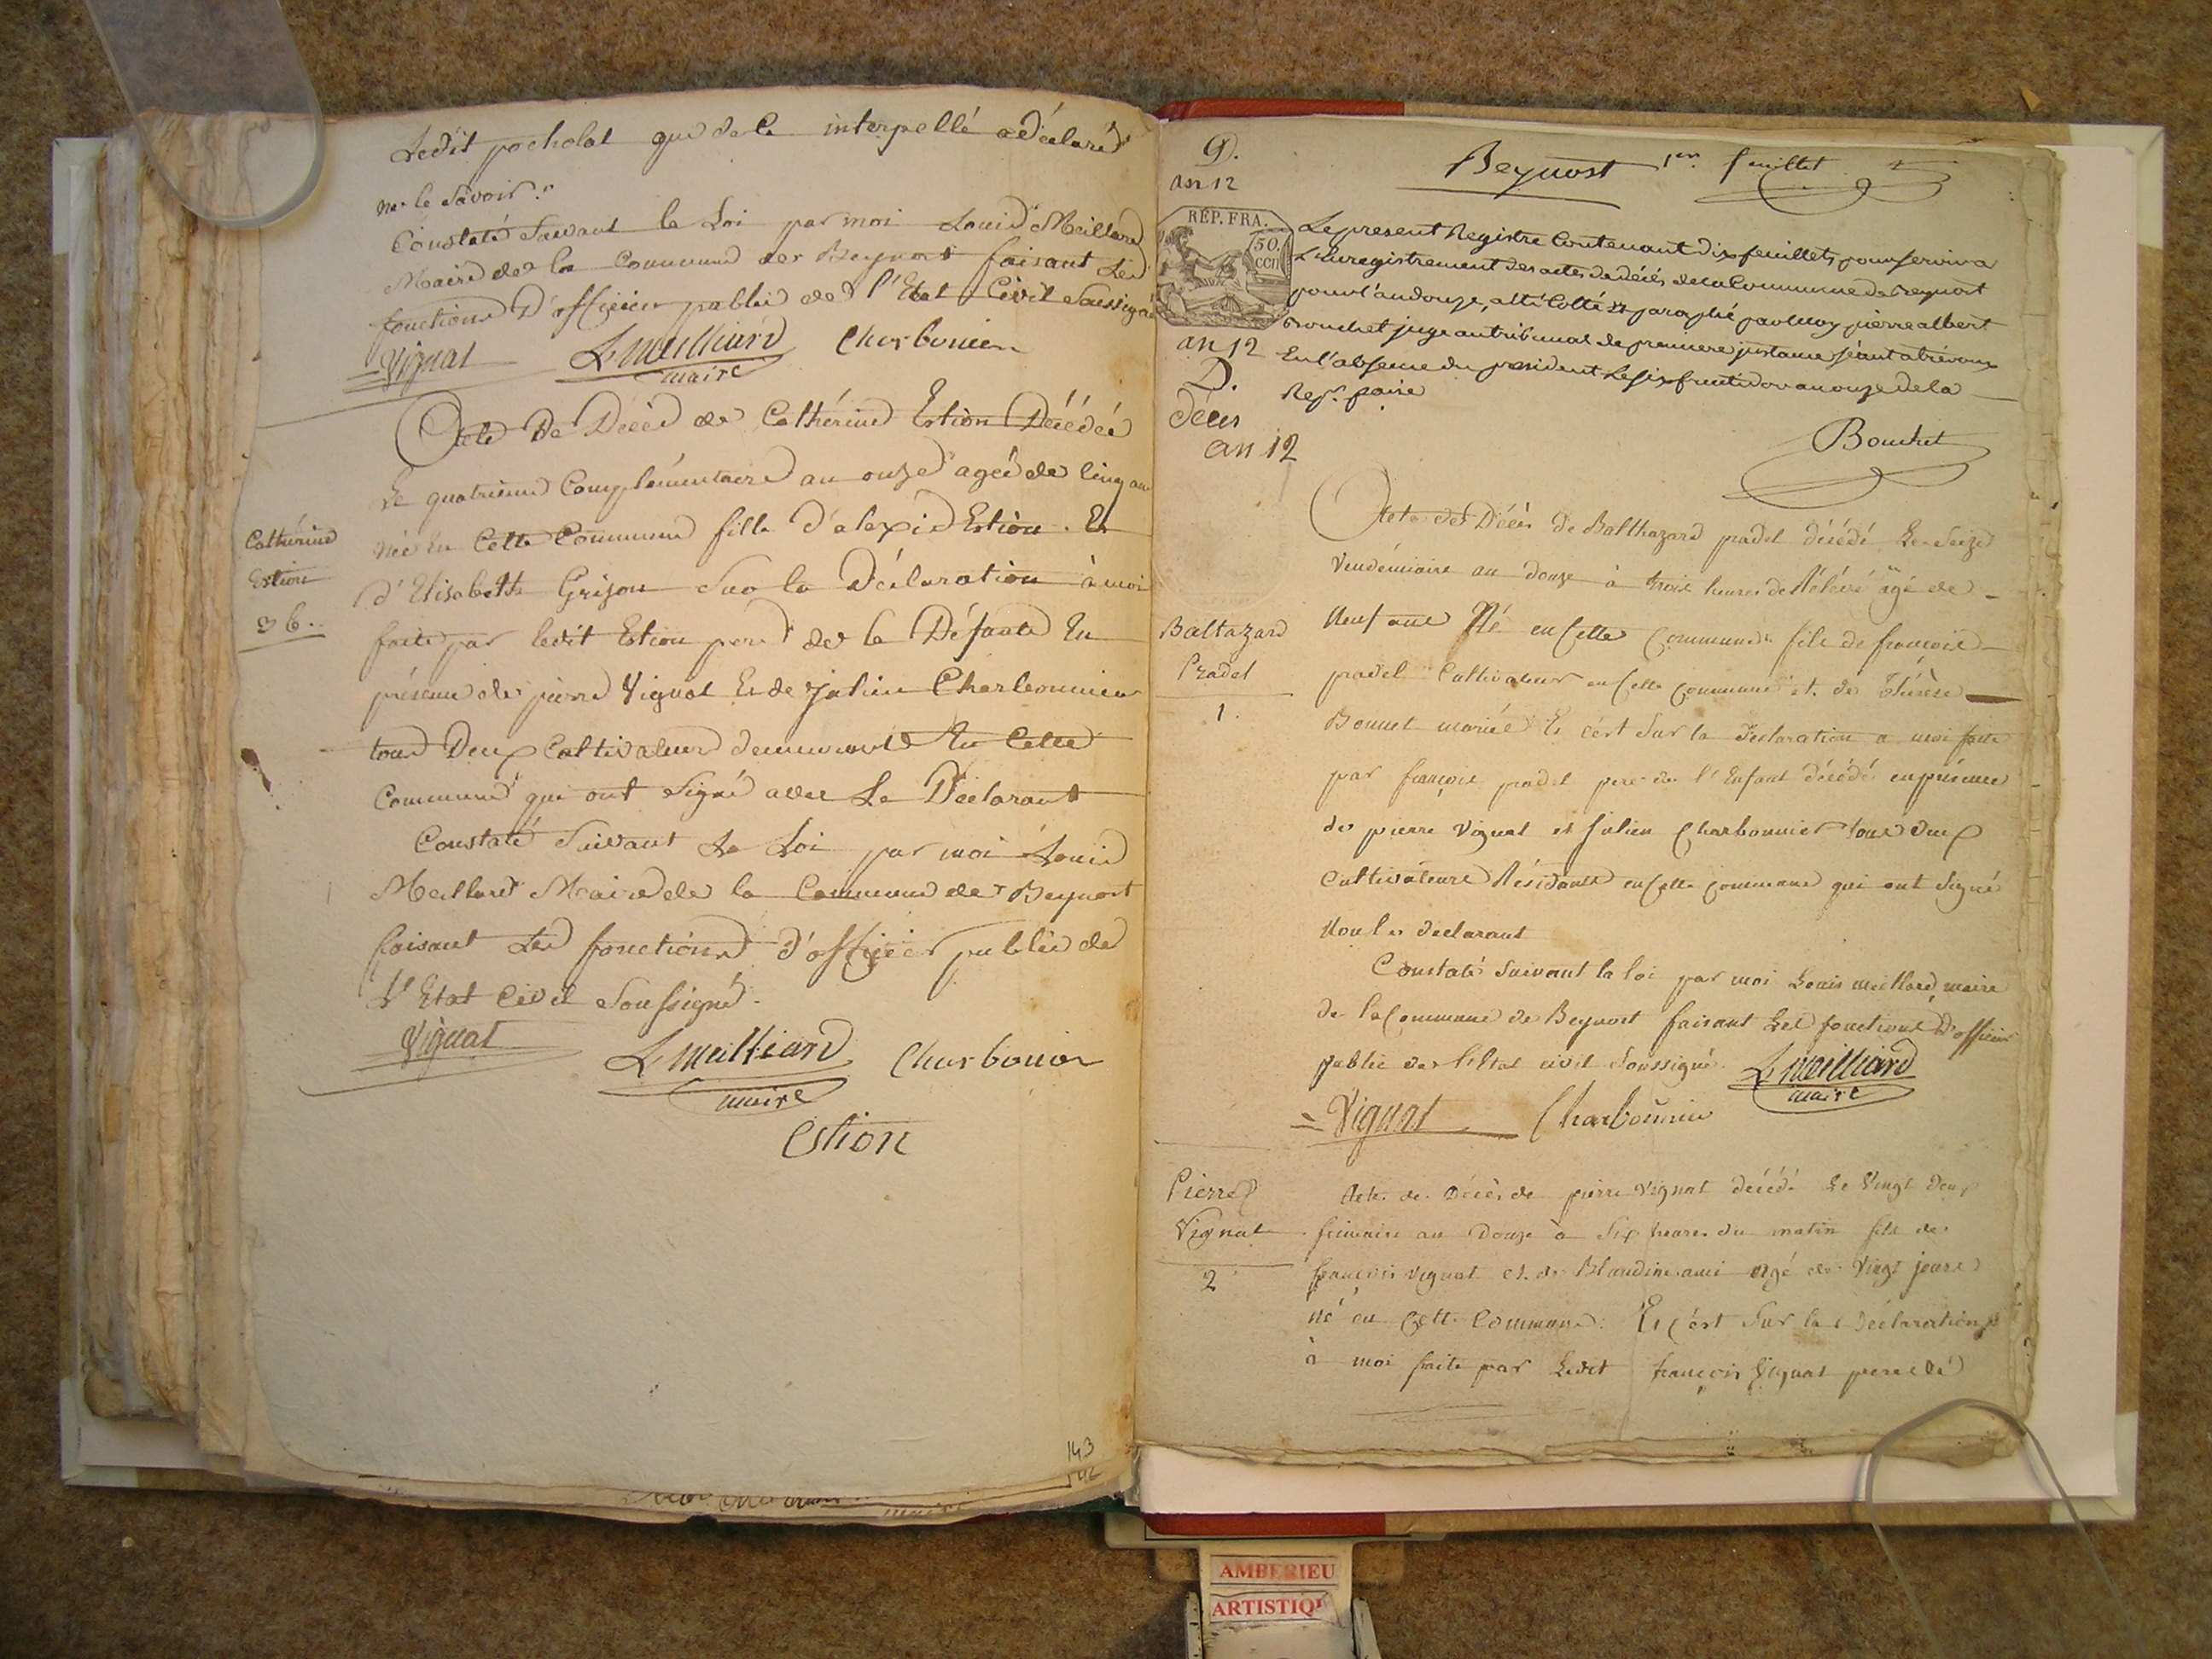 Ledit pocholat que de ce interpellé a Déclaré
ne le Savoir.
Constaté Suivant la Loi par moi Louis Meillard
Maire de la Commune de Beynost faisant les
fonctions D'officier public de l'Etat Civil Soussigné
Vignat L Meilliard Charbonier
maire
Acte De Décès de Cathérine Estion Décédée
Le quatrieme Complémentaire an onze agée de Cinq ans
Cathérine
Estion
36.
née En Cette Commune fille d'alexis Estion. Et
d'Elisabeth Grison Sur la Déclaration à moi
faite par ledit Estion pere de la Défunte En
présence de pierre Vignat Et de julien Charbonnier
tous Deux Cultivateurs demeurants En Cette
Commune qui ont Signé avec Le Déclarant
Constaté Suivant La Loi par moi Louis
Meillard Maire de la Commune de Beynost
faisant Les fonctions d'officier public de
L'Etat Civil Soussigné.
Vignat L Meilliard Charbonier
maire
Estion
143
9.
an 12
Beynost 1er feuillet
RÉP. FRA.
50.
CEN
Le present Registre Contenant Dix feuillets pour servir a
L'Enregistrement des actes de décés de la Commune de Beynost
pour l'an douze, a été Cotté et paraphé par Moy pierre albert
Bouchet juge au tribunal de premiere jnstance séant a trévoux
En l'absence du president Le six fructidor an onze de la
Rep. 
an 12
D.
décès
an 12
Bouchet
Acte de Décès de Balthazard pradel décédé Le Seize
Vendémiaire an douze à trois heures de Rélévé agé de
Baltazard
Pradel
1.
Neuf ans Né en Cette Commune fils de françois
pradel Cultivateur en Cette Commune et de Thérèse
Bonnet mariés Et c'ert Sur la Déclaration a moi faite
par françois pradel pere de l'Enfant décédé en présence
de pierre Vignat et julien Charbonnier tous deux
Cultivateurs Résidants en Cette Commune qui ont Signé
Non le déclarant
Constaté Suivant la loi par moi Louis meillard, maire
de la Commune de Beynost faisant Les fonctions d'officier
public de l'Etat civil Soussigné. L Meilliard
maire
Vignat Charbonnier
Pierre
Vignat
2
Acte de Décès de pierre Vignat décédé Le Vingt deux
frimaire an Douze à Six heures du matin fils de
françois vignat et de Blandine ami agé de Vingt jours
né en Cette Commune. Et c'ert Sur la Déclaration
à moi faite par Ledit françois Vignat pere de
AMBERIEU
ARTISTIQU